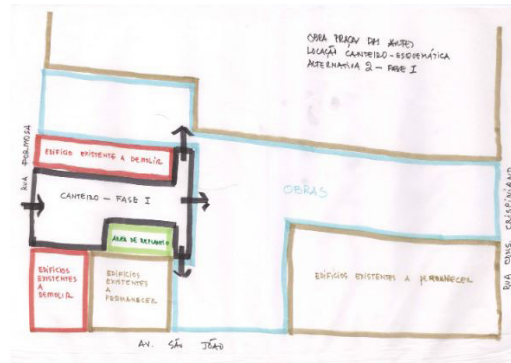 OBRA PRAÇA DAS ARTES
LOCAÇÃO CANTEIRO - ESQUEMÁTICA
ALTERNATIVA 2 - FASE I
RUA FORMOSA
EDIFÍCIO EXISTENTE A DEMOLIR
CANTEIRO - FASE I
OBRAS
RUA CONS. CRISPINIANO
EDIFÍCIOS
EXISTENTES
A
DEMOLIR
EDIFÍCIOS
EXISTENTES
A
PERMANECER
EDIFÍCIOS EXISTENTES A PERMANECER
AV. SÃO JOÃO